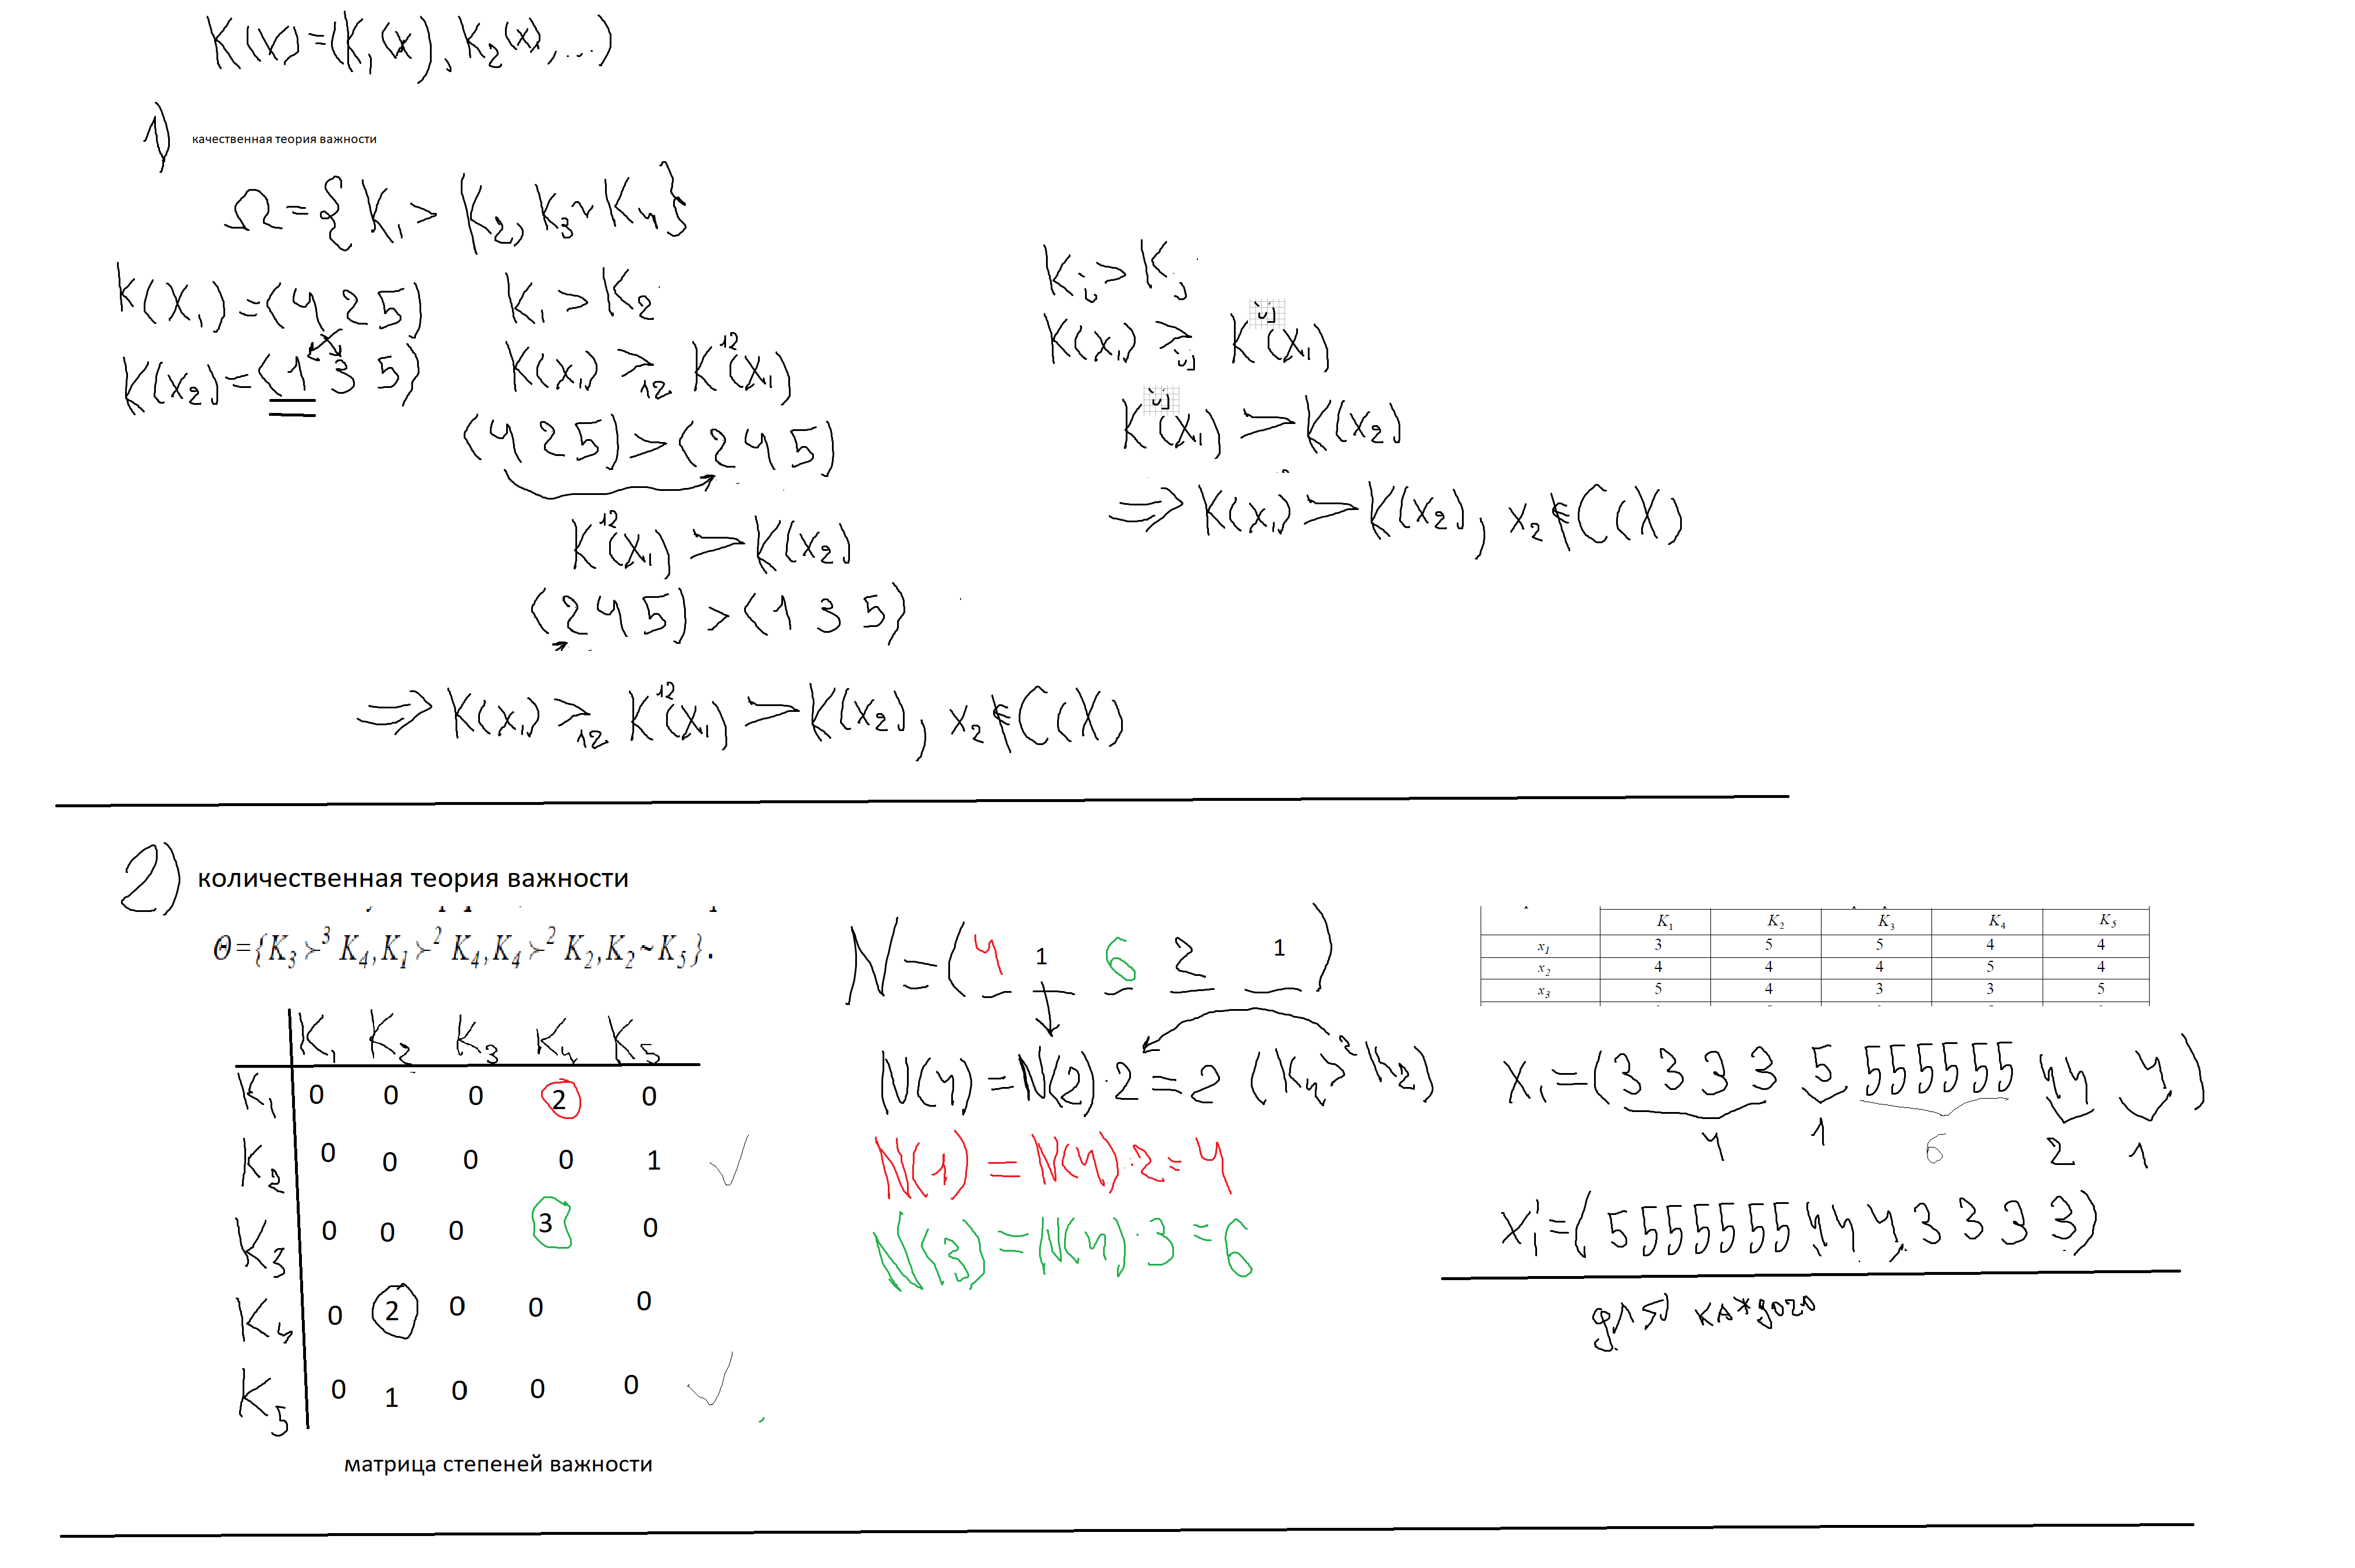 K(x)=(K₁(x), K₂(x), ...)
1) качественная теория важности
Ω={K₁>K₂, K₃~K₄}
K(x₁)=(4 2 5)
K(x₂)=(1 3 5)
K₁>K₂
K(x₁) ≻₁₂ K¹²(x₁)
(4 2 5)>(2 4 5)
K¹²(x₁)>K(x₂)
(2 4 5)>(1 3 5)
⇒K(x₁) ≻₁₂ K¹²(x₁)>K(x₂), x₂∉C(X)
Kᵢ>Kⱼ
K(x₁) ≻ᵢⱼ Kⁱʲ(x₁)
Kⁱʲ(x₁)>K(x₂)
⇒K(x₁)>K(x₂), x₂∉C(X)
2) количественная теория важности
Θ={K₃≻³K₄,K₁≻²K₄,K₄≻²K₂,K₂~K₅}.
K₁ K₂ K₃ K₄ K₅
K₁ 0 0 0 2 0
K₂ 0 0 0 0 1
K₃ 0 0 0 3 0
K₄ 0 2 0 0 0
K₅ 0 1 0 0 0
матрица степеней важности
N=(4 1 6 2 1)
N(4)=N(2)·2=2 (K₄>²K₂)
N(1)=N(4)·2=4
N(3)=N(4)·3=6
K₁ K₂ K₃ K₄ K₅
x₁ 3 5 5 4 4
x₂ 4 4 4 5 4
x₃ 5 4 3 3 5
x₁=(3 3 3 3 5 555555 44 4)
4 1 6 2 1
x₁'=(5555555 4 4 4 3 3 3 3)
для каждого